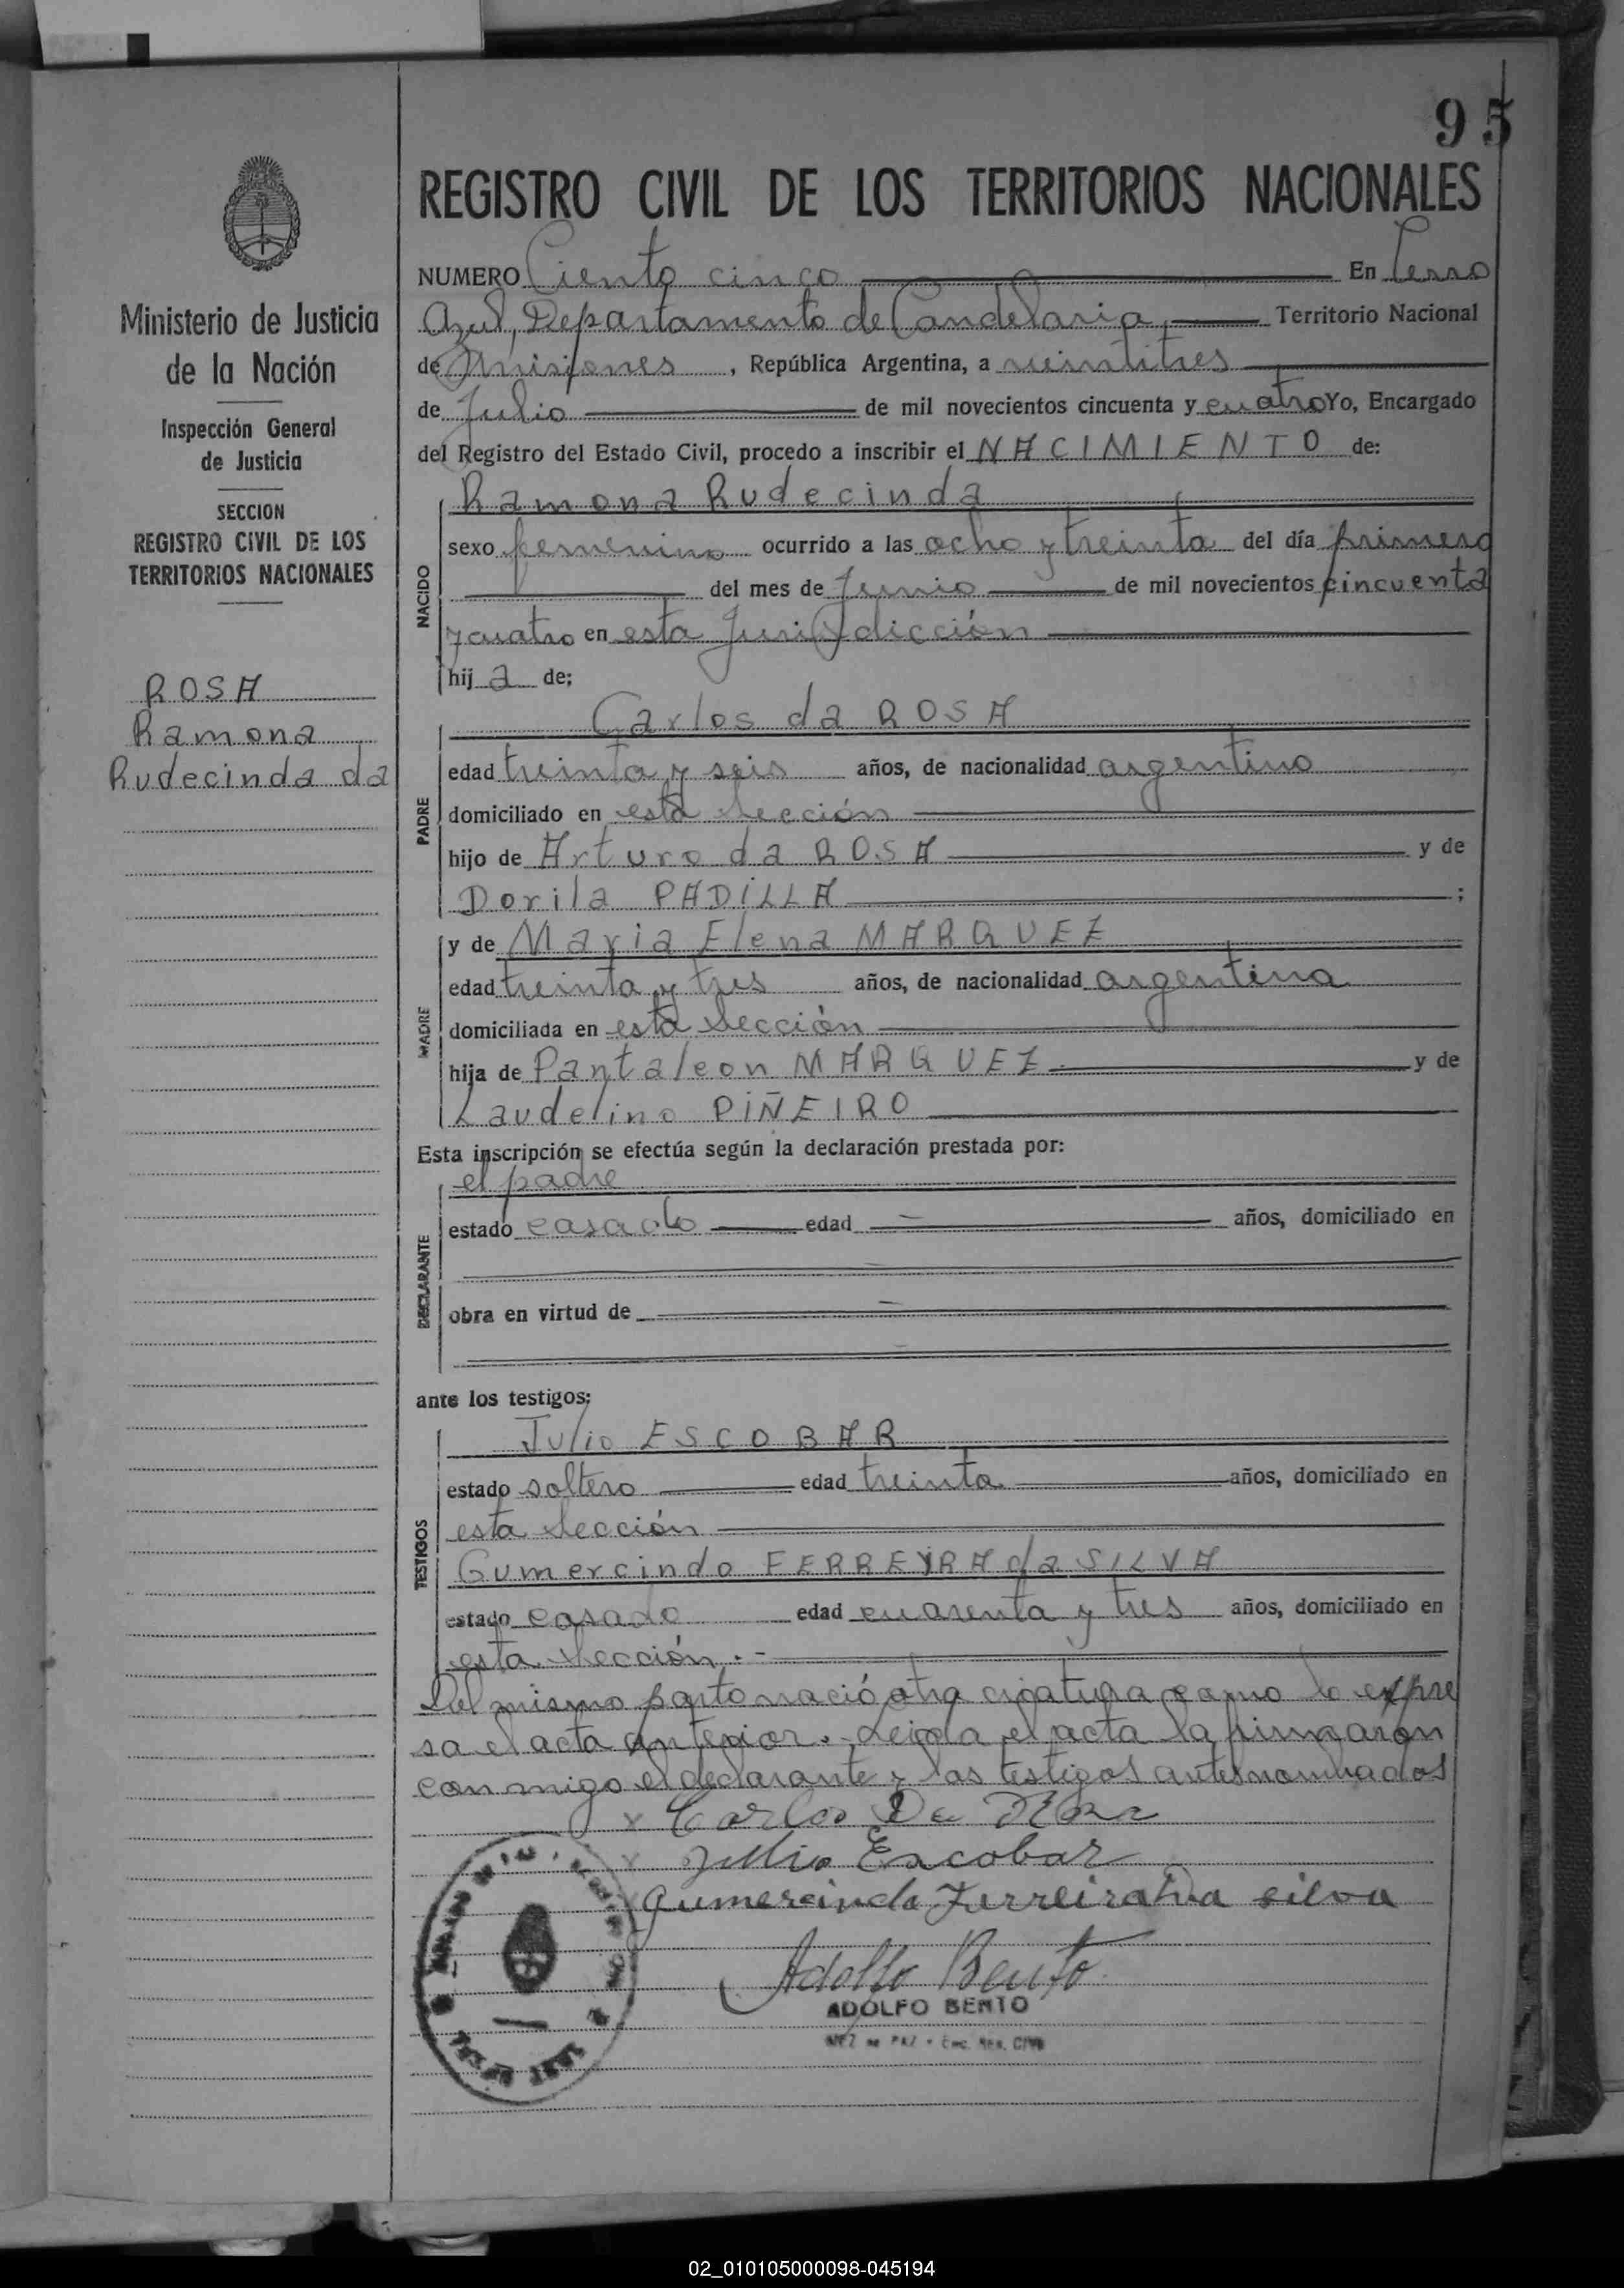 95
REGISTRO CIVIL DE LOS TERRITORIOS NACIONALES
NUMERO Ciento cinco En Cerro
Azul, Departamento de Candelaria, Territorio Nacional
de Misiones, República Argentina, a veintitres
de Julio de mil novecientos cincuenta y cuatro Yo, Encargado
del Registro del Estado Civil, procedo a inscribir el NACIMIENTO de:
NACIDO
Ramona Rudecinda
sexo femenino ocurrido a las ocho y treinta del día primero
del mes de Junio de mil novecientos cincuenta
y cuatro en esta Jurisdicción
hija de;
PADRE
Carlos da ROSA
edad treinta y seis años, de nacionalidad argentino
domiciliado en esta Sección
hijo de Arturo da ROSA y de
Dorila PADILLA ;
MADRE
y de Maria Elena MARQUEZ
edad treinta y tres años, de nacionalidad argentina
domiciliada en esta Sección
hija de Pantaleon MARQUEZ y de
Laudelino PIÑEIRO
Esta inscripción se efectúa según la declaración prestada por:
DECLARANTE
el padre
estado casado edad años, domiciliado en
obra en virtud de
ante los testigos:
TESTIGOS
Julio ESCOBAR
estado soltero edad treinta años, domiciliado en
esta Sección
Gumercindo FERREYRA da SILVA
estado casado edad cuarenta y tres años, domiciliado en
esta Sección.-
Del mismo parto nació otra criatura como lo expre
sa el acta anterior.- Leida el acta la firmaron
conmigo el declarante y los testigos antesnombrados
x Carlos Da Rosa
x Julio Escobar
x Gumersindo Ferreira Da silva
Adolfo Bento
ADOLFO BENTO
JUEZ DE PAZ - Enc. Reg. Civil
Ministerio de Justicia
de la Nación
Inspección General
de Justicia
SECCION
REGISTRO CIVIL DE LOS
TERRITORIOS NACIONALES
ROSA
Ramona
Rudecinda da
02_010105000098-045194